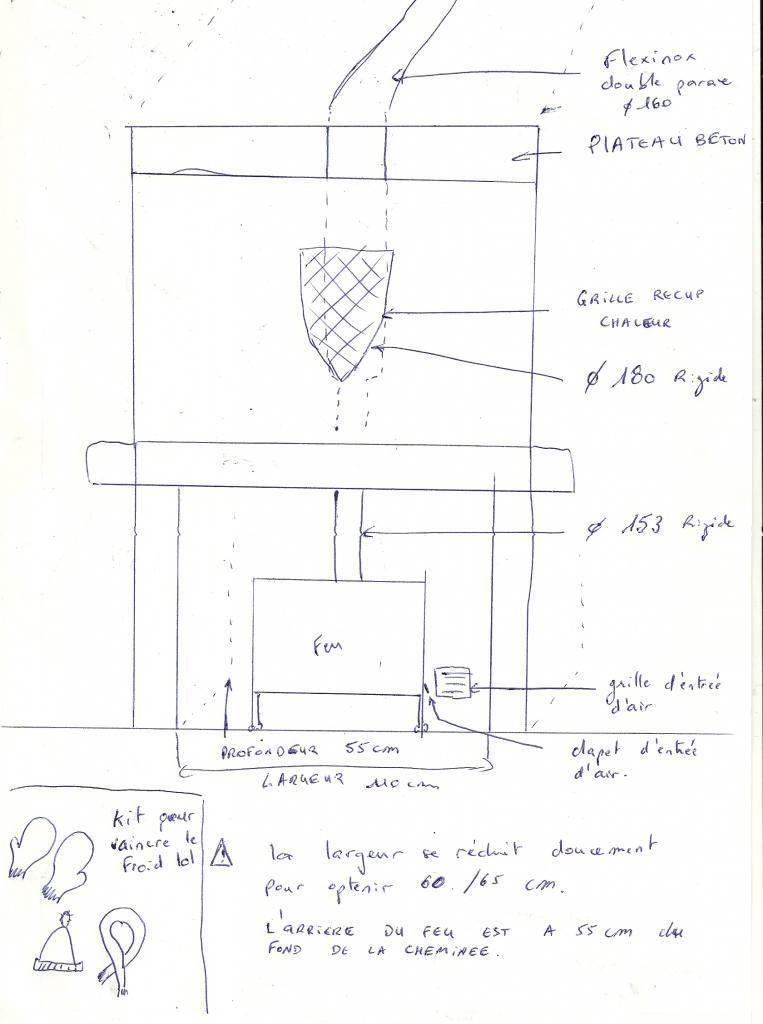 Flexinox
double paroie
ø 160
PLATEAU BETON
GRILLE RECUP
CHALEUR
ø 180 Rigide
ø 153 Rigide
Feu
grille d'entrée
d'air
clapet d'entrée
d'air.
PROFONDEUR 55 cm
LARGEUR 110 cm
Kit pour
vaincre le
froid lol
la largeur se réduit doucement
pour optenir 60./65 cm.
L'ARRIERE DU FEU EST A 55 cm du
FOND DE LA CHEMINEE.